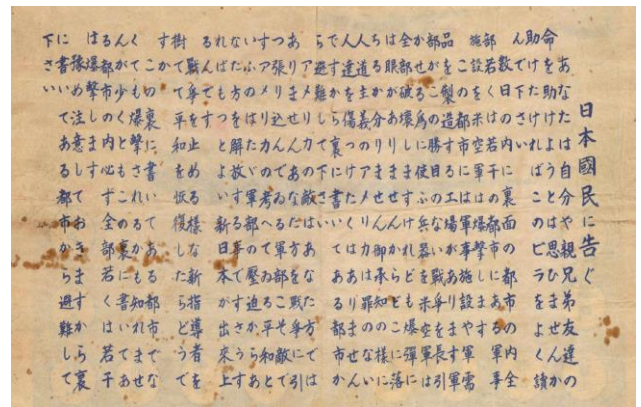 日本國民に告ぐ
あなたは自分や親兄弟友達の
命を助けようとは思ひませんか
助けたければこのビラをよく讀
んで下さい
数日の内に裏面の都市の内全
部若くは若干の都市にある軍事
施設を米空軍は爆撃します
この都市には軍事施設や軍需
品を製造する工場があります軍
部がこの勝目のない戰爭を長引
かせる為に使ふ兵器を米空軍は
全部破壊しますけれども爆彈に
は眼がありませんからどこに落
ちるか分りません御承知の様に
人道主義のアメリカは罪のない
人達を傷つけたくはありません
ですから裏に書いてある都市か
ら避難して下さい
アメリカの敵はあなた方では
ありませんあなた方を戰爭に引
つ張り込んでゐる軍部こそ敵で
すアメリカの考へてゐる平和と
いふのはたゞ軍部の壓迫からあ
なた方を解放する事ですそうす
ればもつとよい新日本が出來上
るんです
戰爭を止める様な新指導者を
樹てて平和を恢復したらどうで
すか
この裏に書いてある都市でな
くても爆撃されるかも知れませ
んが少くともこの裏に書いてあ
る都市の内必ず全部若くは若干
は爆撃します
豫め注意しておきますから裏
に書いてある都市から避難して
下さい